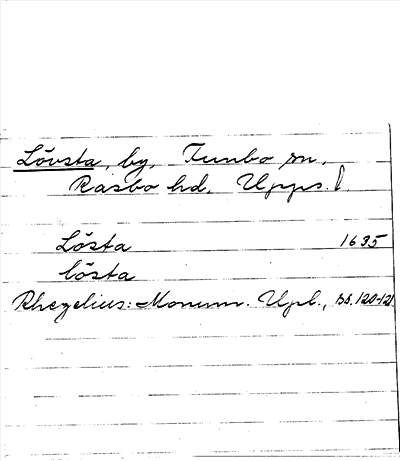 Lövsta, by, Funbo sn.
Rasbo hd. Upps. l.
Lösta 1635
lösta
Rhezelius: Monum. Upl., ss. 120-121